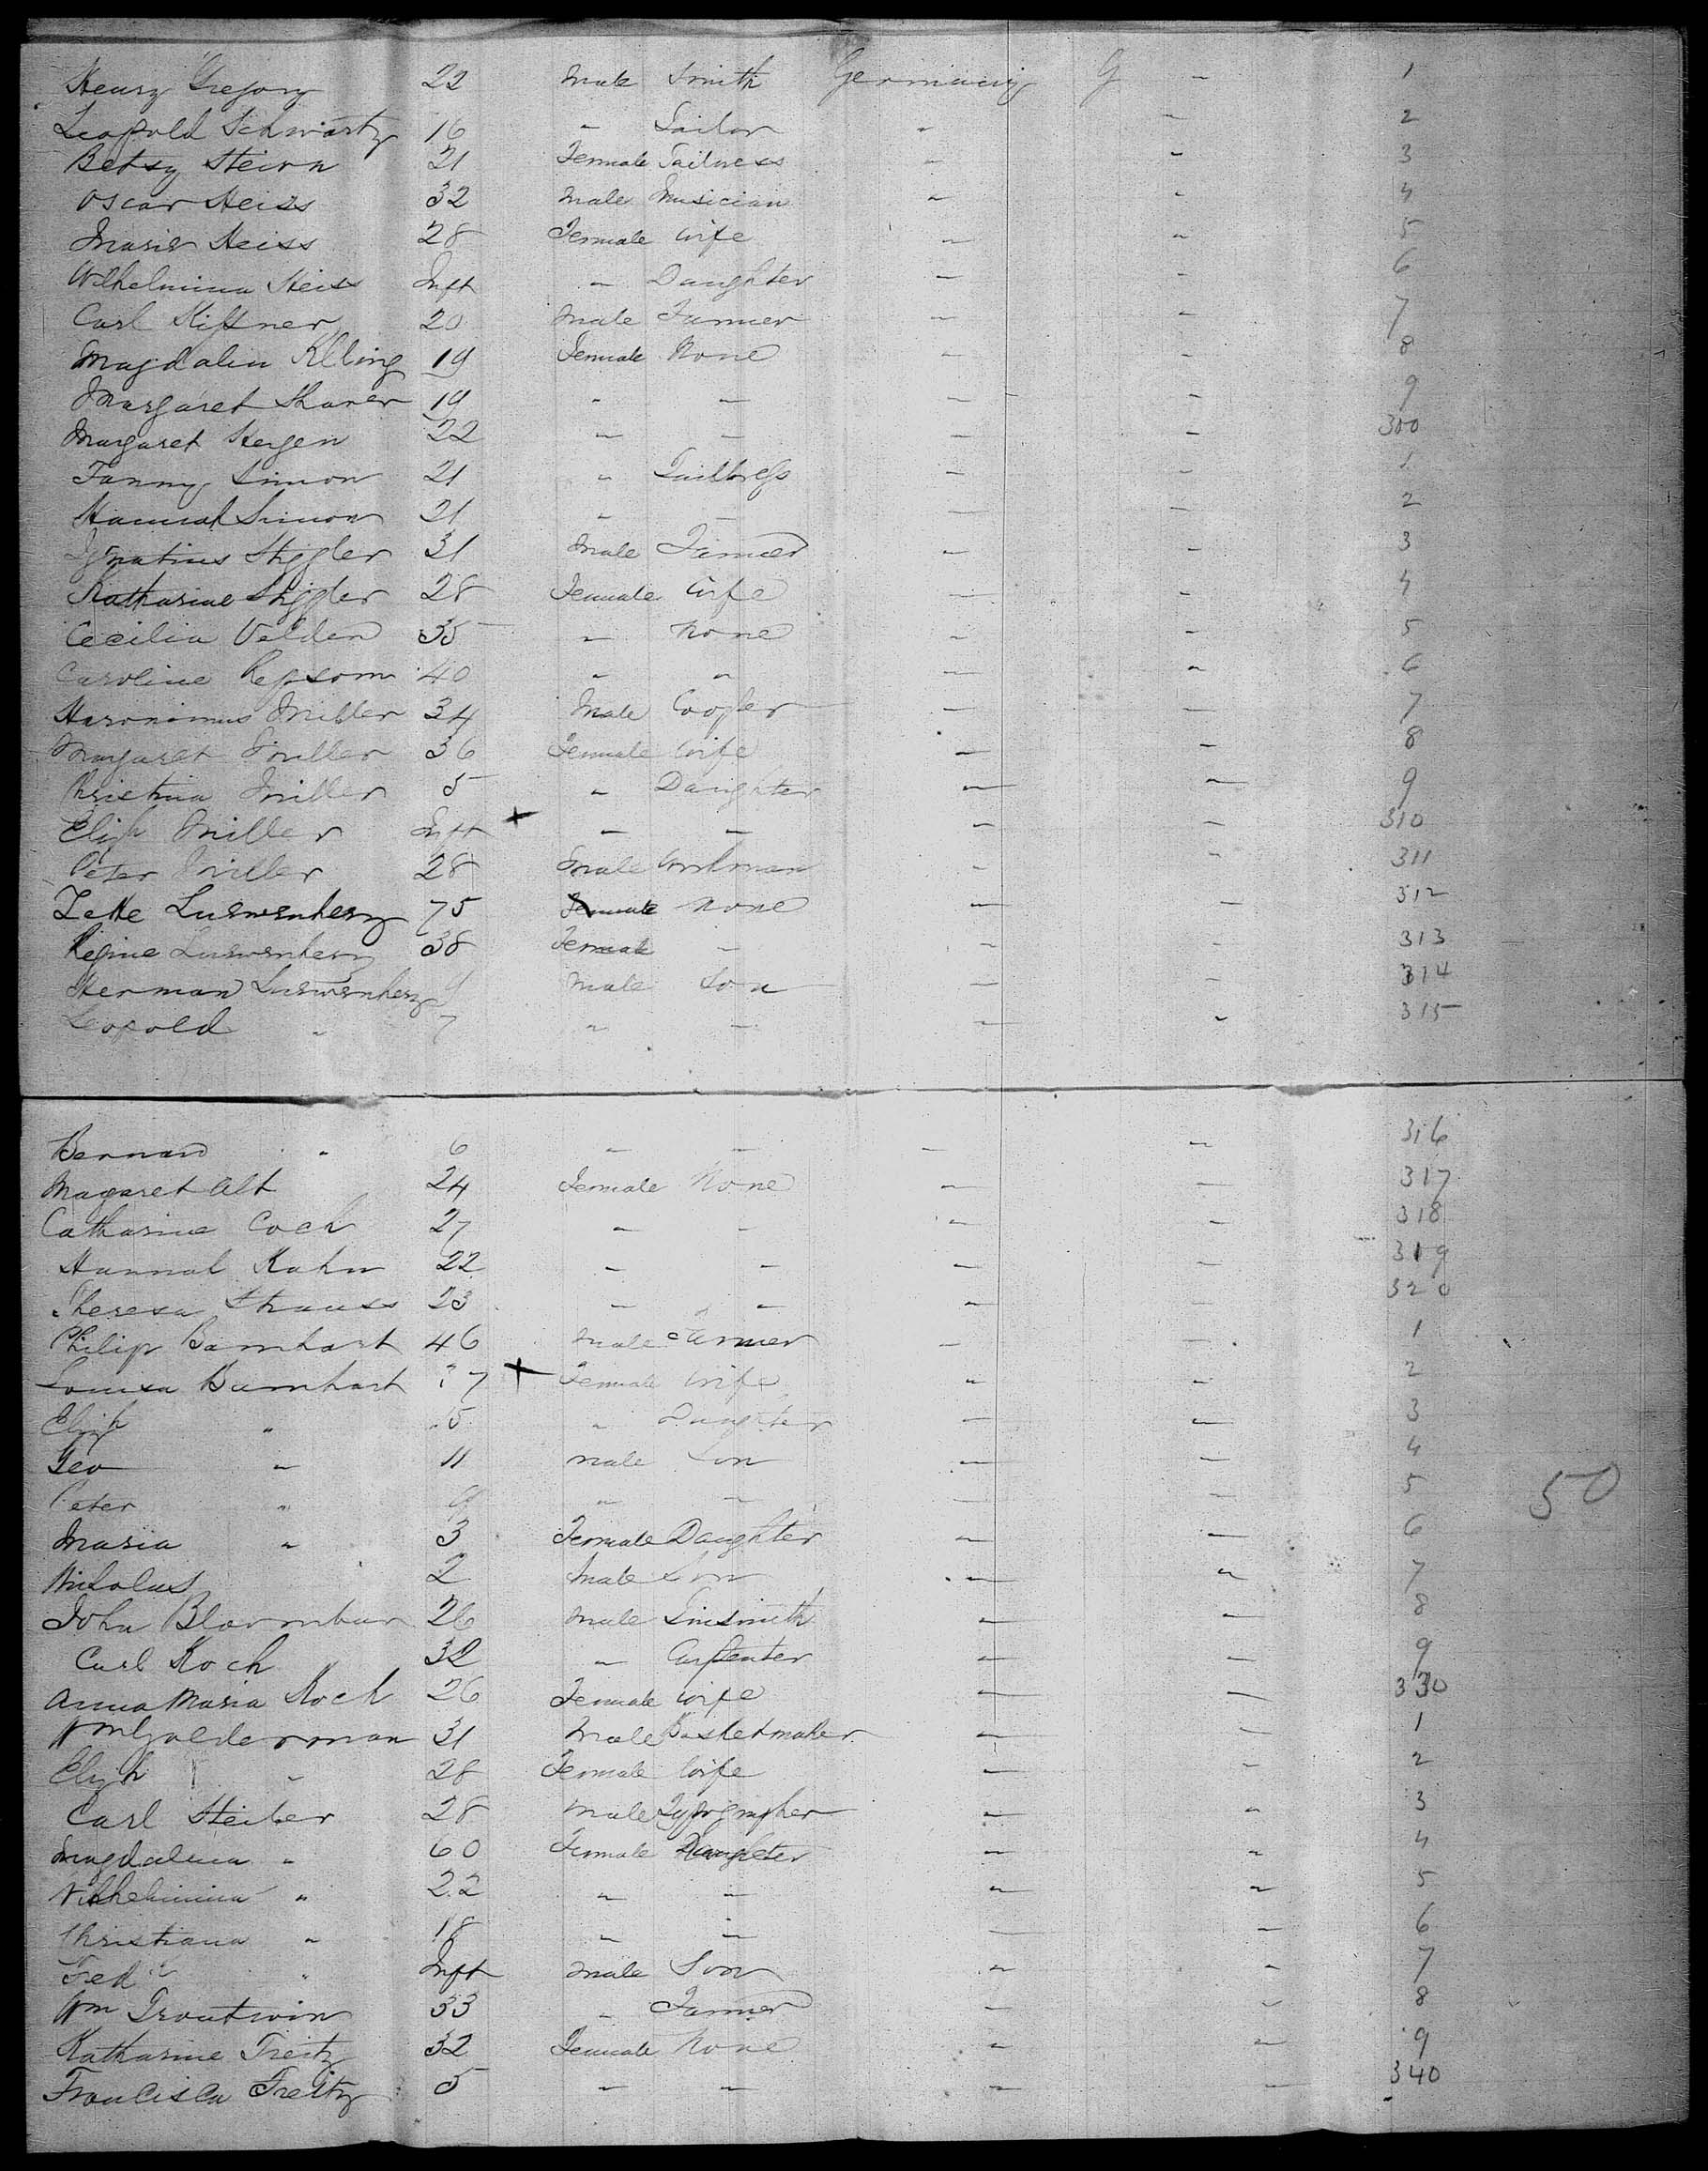 Henry Gregory 22 Male Smith Germany G - 1
Leopold Schwartz 16 " Tailor " - 2
Betsy Steirn 21 Female Tailuess - - 3
Oscar Heiss 32 Male Musician - - 4
Marie Heiss 28 Female Wife - - 5
Wilhelmina Heiss Inft - Daughter - - 6
Carl 20 Male Farmer - - 7
Magdalin 19 Female None - - 8
Margaret Sharer 19 - - - - 9
Margaret Hergen 22 - - - - 300
Fanny Simon 21 " Tailoress - - 1
Hannah Simon 21 - - - - 2
Ignatius Stiggler 31 Male Farmer - - 3
Katharine Stiggler 28 Female Wife - - 4
Cecilia Velden 35 - None - - 5
Caroline Repsom 40 " " - - 6
Haronimus Miller 34 Male Cooper - - 7
Margaret Miller 36 Female Wife - - 8
Christina Miller 5 - Daughter - - 9
Elizh Miller Inft + - - - - 310
Peter Miller 28 Male Workman - - 311
Zette 75 Female None - - 312
Regine 38 Female - - - 313
Herman 9 Male Son - - 314
Leopold " 7 " - - - 315
Bernard " 6 - - - - 316
Magaret Alt 24 Female None - - 317
Catharine Coch 27 - - - - 318
Hannah Kahn 22 - - - - 319
Theresa Strauss 23 - - - - 320
Philip Barnhart 46 Male Farmer - - 1
Louisa Barnhart 37 + Female Wife " - 2
Elizh " 15 " Daughter - - 3
Geo " 11 Male Son - - 4
Peter " 9 - - - - 5
Maria " 3 Female Daughter - - 6
Nicholas 2 Male Son - - 7
John Bloombur 26 Male Tinsmith - - 8
Carl Koch 32 - Carpenter - - 9
Anna Maria Koch 26 Female Wife - - 330
Wm Golderman 31 Male Basketmaker - - 1
Elizh " 28 Female Wife - - 2
Carl Steiber 28 Male Typographer - - 3
Magdalena " 60 Female Daughter - - 4
Wilhelmina " 22 " - - - 5
Christiana " 18 - - - - 6
Fredk " Inft Male Son - - 7
Wm Troutwin 33 - Farmer - - 8
Katharine Treitz 32 Female None - - 9
Francisca Treitz 5 - - - - 340
50